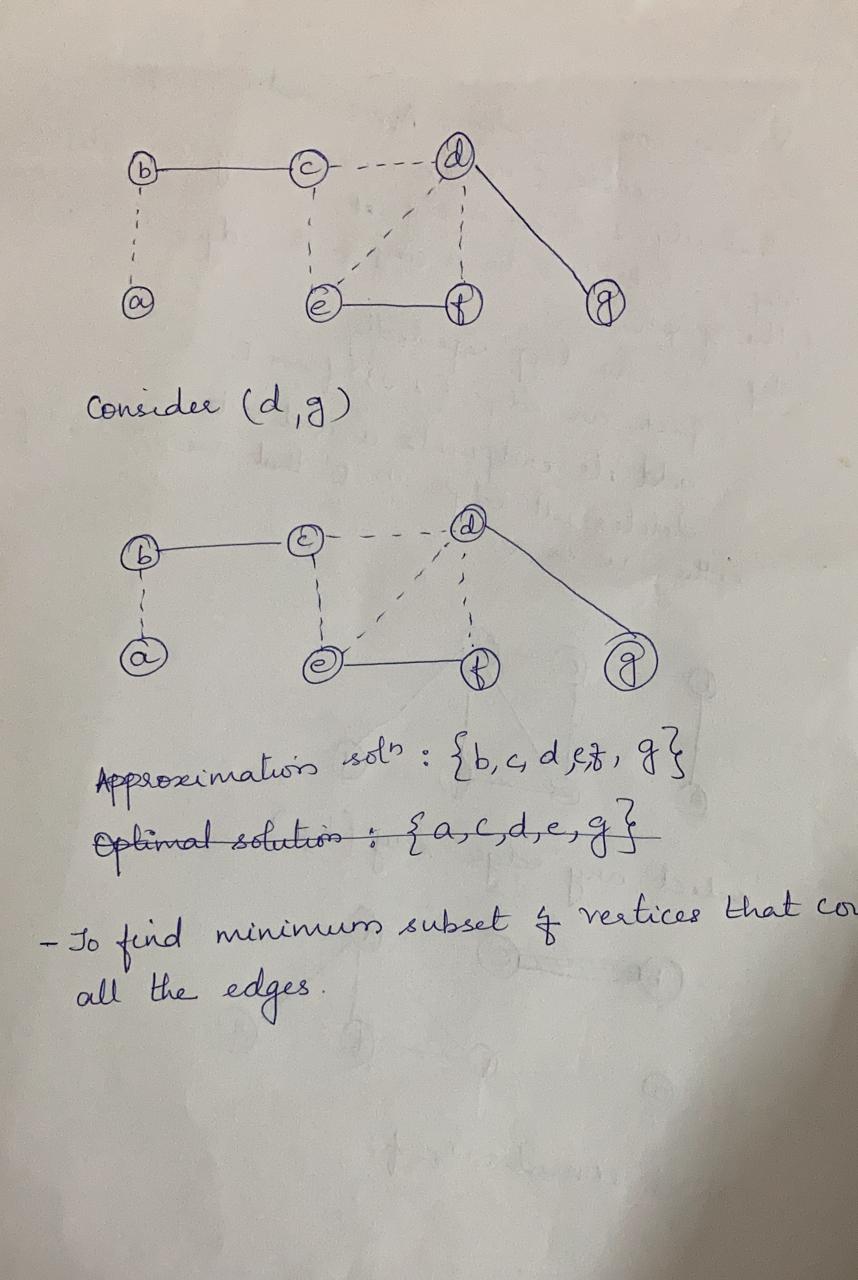 b c d
a e f g
Consider (d,g)
b c d
a e f g
Approximation solⁿ : {b, c, d, e, f, g}
Optimal solution : {a, c, d, e, g}
- To find minimum subset of vertices that
all the edges.